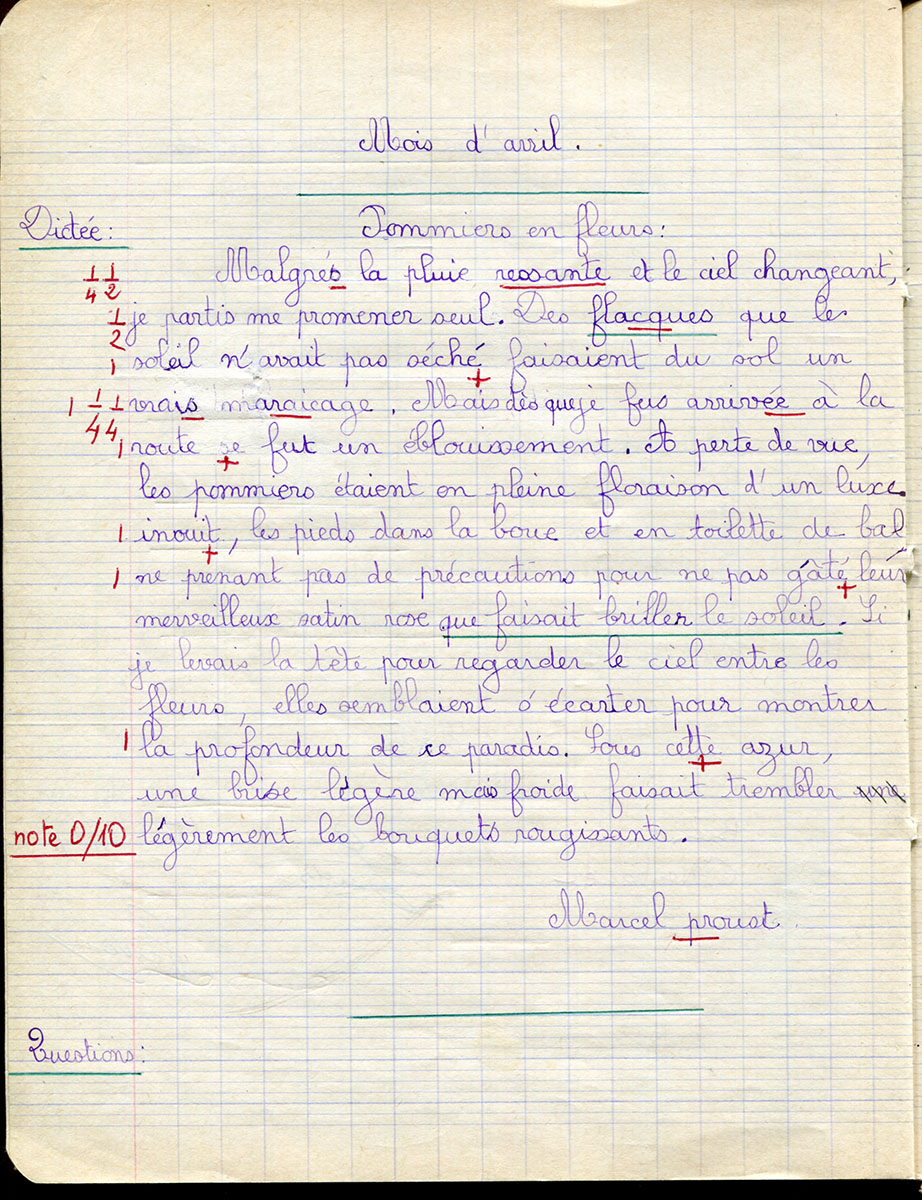 Mois d'avril.
Dictée: Pommiers en fleurs:
1/4 1/2 Malgrés la pluie ressante et le ciel changeant,
1/2 je partis me promener seul. Des flacques que les
1 soleil n'avait pas séché faisaient du sol un
1 1/4 1/4 vrais maraicage. Mais dès que je fus arrivée à la
1 route se fut un éblouissement. A perte de vue,
les pommiers étaient en pleine floraison d'un luxe
1 inouit, les pieds dans la boue et en toilette de bal
1 ne prenant pas de précautions pour ne pas gâté leur
merveilleux satin rose que faisait briller le soleil. Si
je levais la tête pour regarder le ciel entre les
fleurs, elles semblaient s'écarter pour montrer
1 la profondeur de ce paradis. Sous cette azur,
une brise légère mais froide faisait trembler
note 0/10 légèrement les bouquets rougissants.
Marcel proust.
Questions: